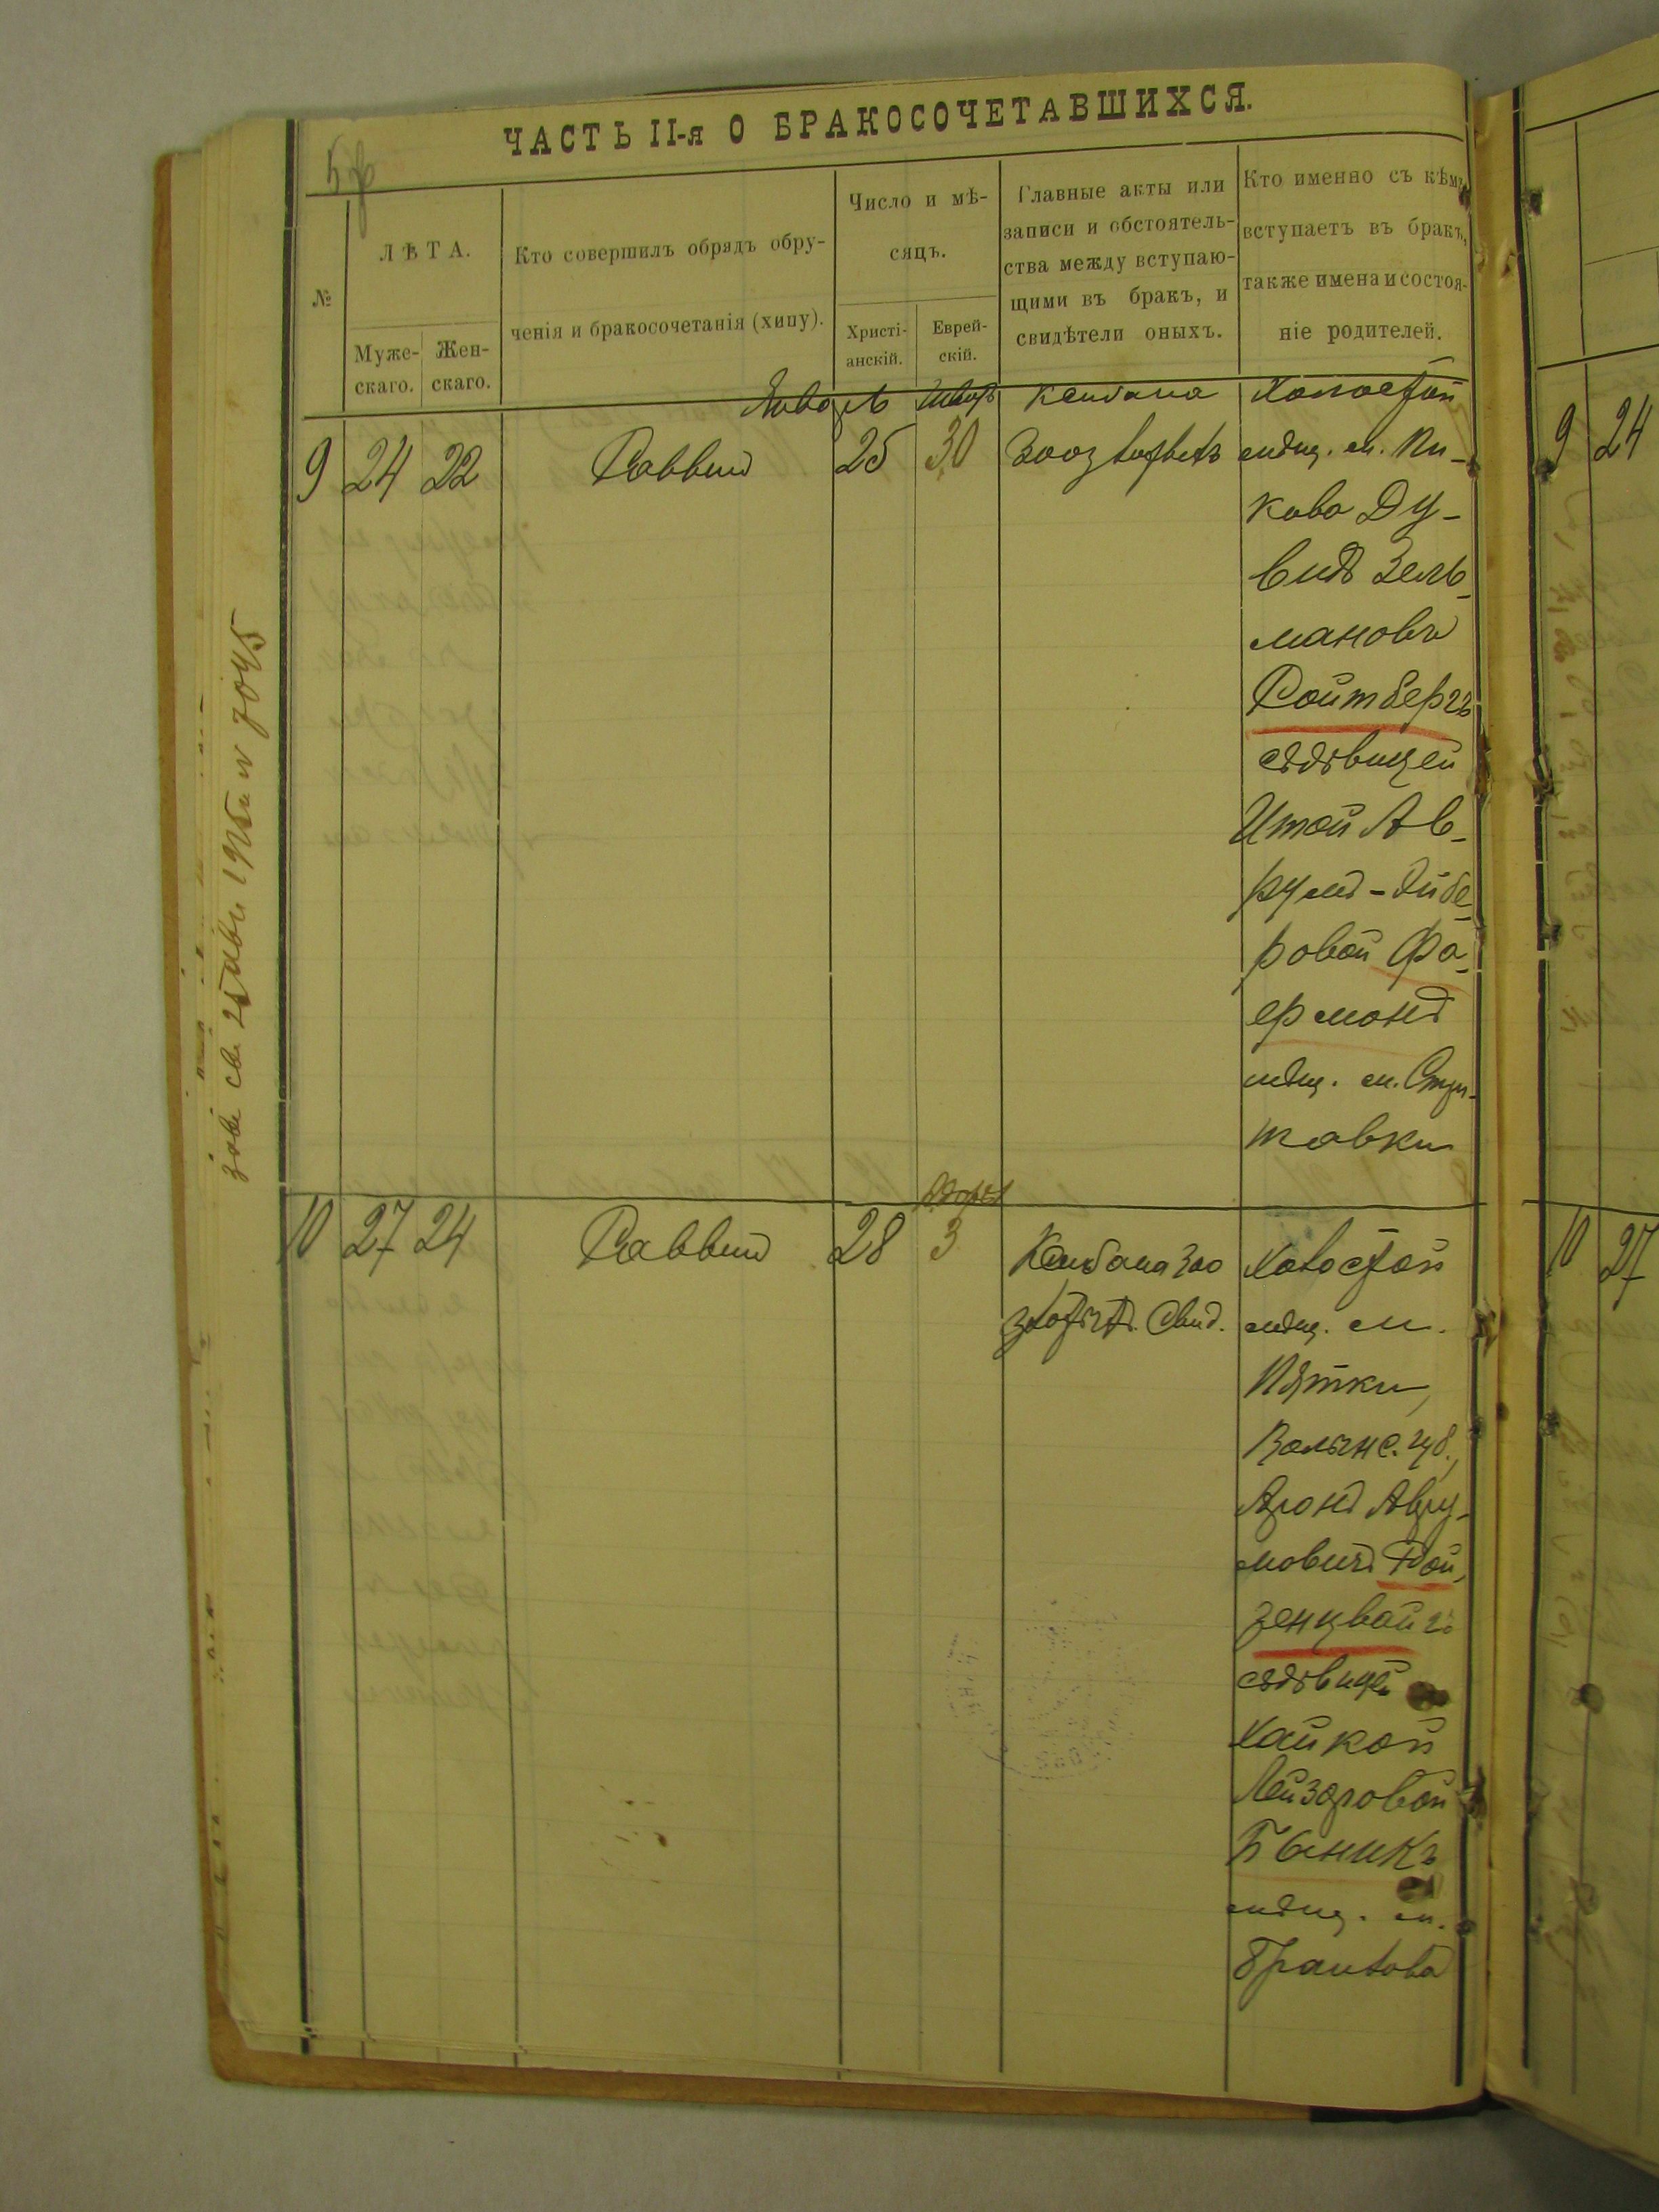 ЧАСТЬ II-я О БРАКОСОЧЕТАВШИХСЯ.
№
ЛѢТА.
Муже-
скаго.
Жен-
скаго.
Кто совершилъ обрядъ обру-
ченія и бракосочетанія (хипу).
Число и мѣ-
сяцъ.
Христі-
анскій.
Еврей-
скій.
Главные акты или
записи и обстоятель-
ства между вступаю-
щими въ бракъ, и
свидѣтели оныхъ.
Кто именно съ кѣмъ
вступаетъ въ бракъ,
также имена и состоя-
ніе родителей.
Январь
9 24 22 Раввин 25 30
Холостой
мѣщ. м. Пи-
кова Ду-
видъ Зель-
мановъ
Ройтбергъ
съ дѣвицей
Итой Ав-
румъ-Лейбе-
ровой Фа-
ермонъ
мѣщ. м. Стри-
жавки
10 27 24 Раввин 28 3
Свид.
Холостой
мѣщ. м.
Пятки,
Волынс. губ.,
Аронъ Авру-
мовичъ Рой-
зенцвайгъ
съ дѣвицей
Хайкой
Лейзоровой
Быникъ
мѣщ. м.
Браилова
9 24
10 27